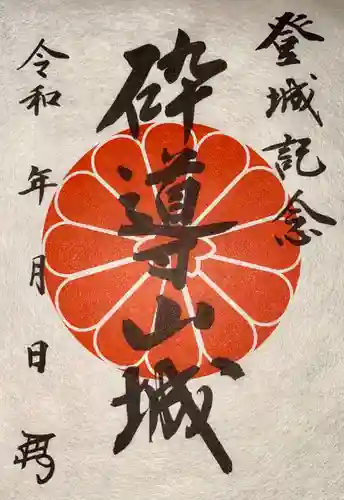 登城記念
砕導山城
令和 年 月 日